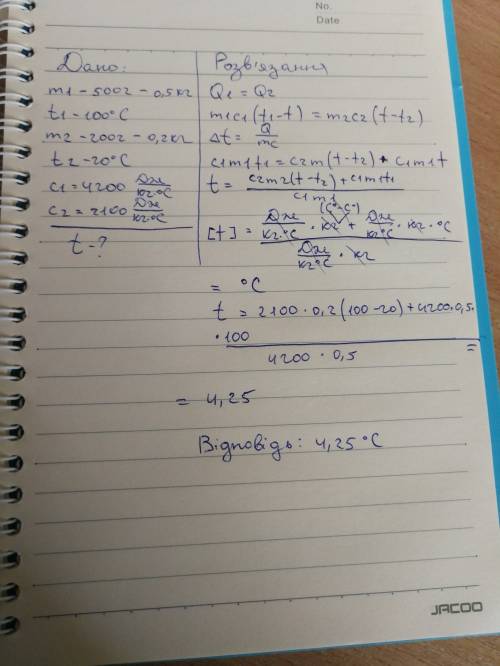 No.
Date
Дано:
m1 - 500г - 0,5кг
t1 - 100°C
m2 - 200г - 0,2кг
t2 - 20°C
c1 = 4200 Дж/кг·°C
c2 = 2100 Дж/кг·°C
t - ?
Розв'язання
Q1 = Q2
m1c1(t1-t) = m2c2(t-t2)
Δt = Q/mc
c1m1t1 = c2m(t-t2) + c1m1t
t = c2m2(t-t2)+c1m1t1 / c1m1
(C°-C°)
[t] = Дж/кг·°C · кг + Дж/кг·°C · кг · °C
Дж/кг·°C · кг
= °C
t = 2100·0,2(100-20)+4200·0,5·
·100
4200·0,5 =
= 4,25
Відповідь: 4,25°C
JACOO